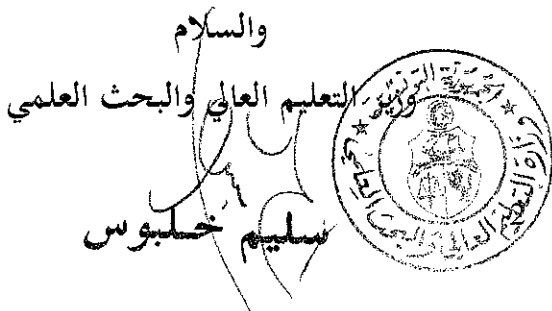 والسلام
وزير التعليم العالي والبحث العلمي
سليم خلبوس
الجمهورية التونسية
وزارة التعليم العالي والبحث العلمي